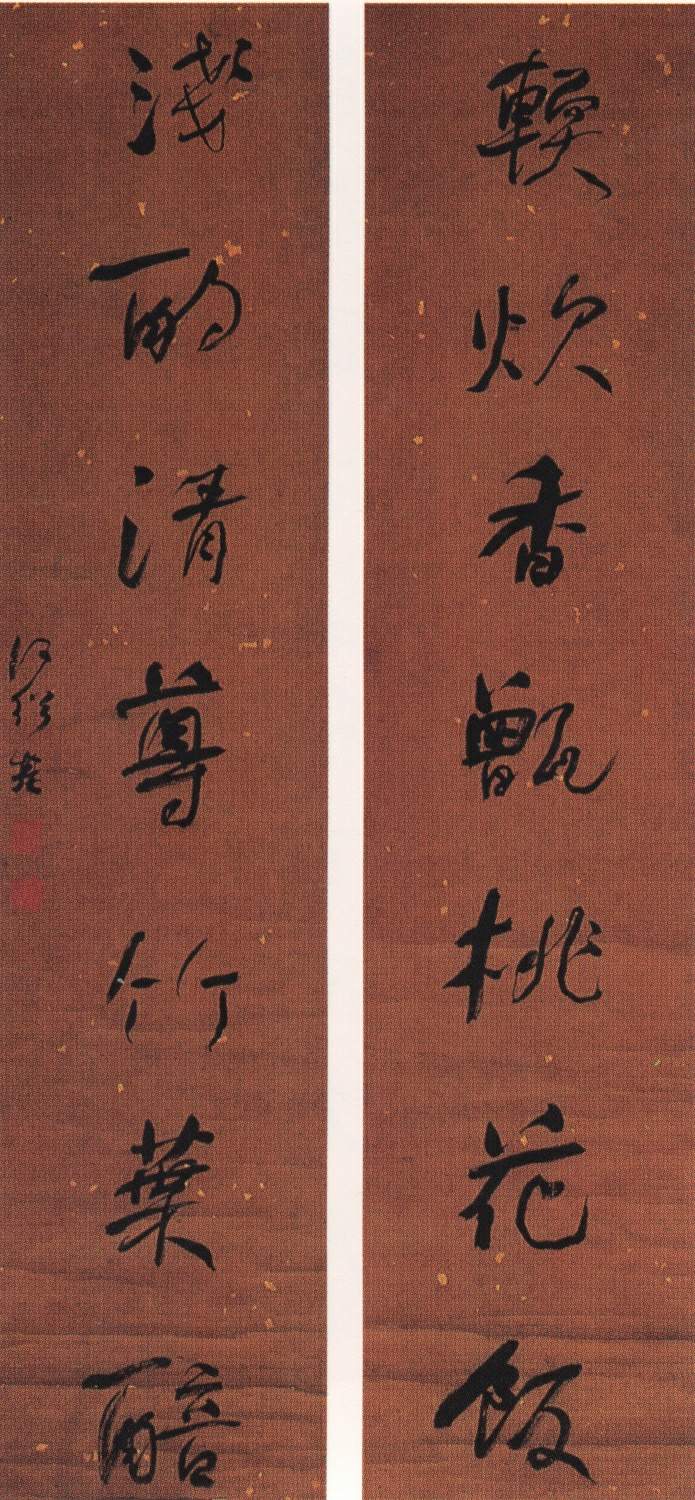 軟炊香甑桃花飯
淺酌清尊竹葉醅